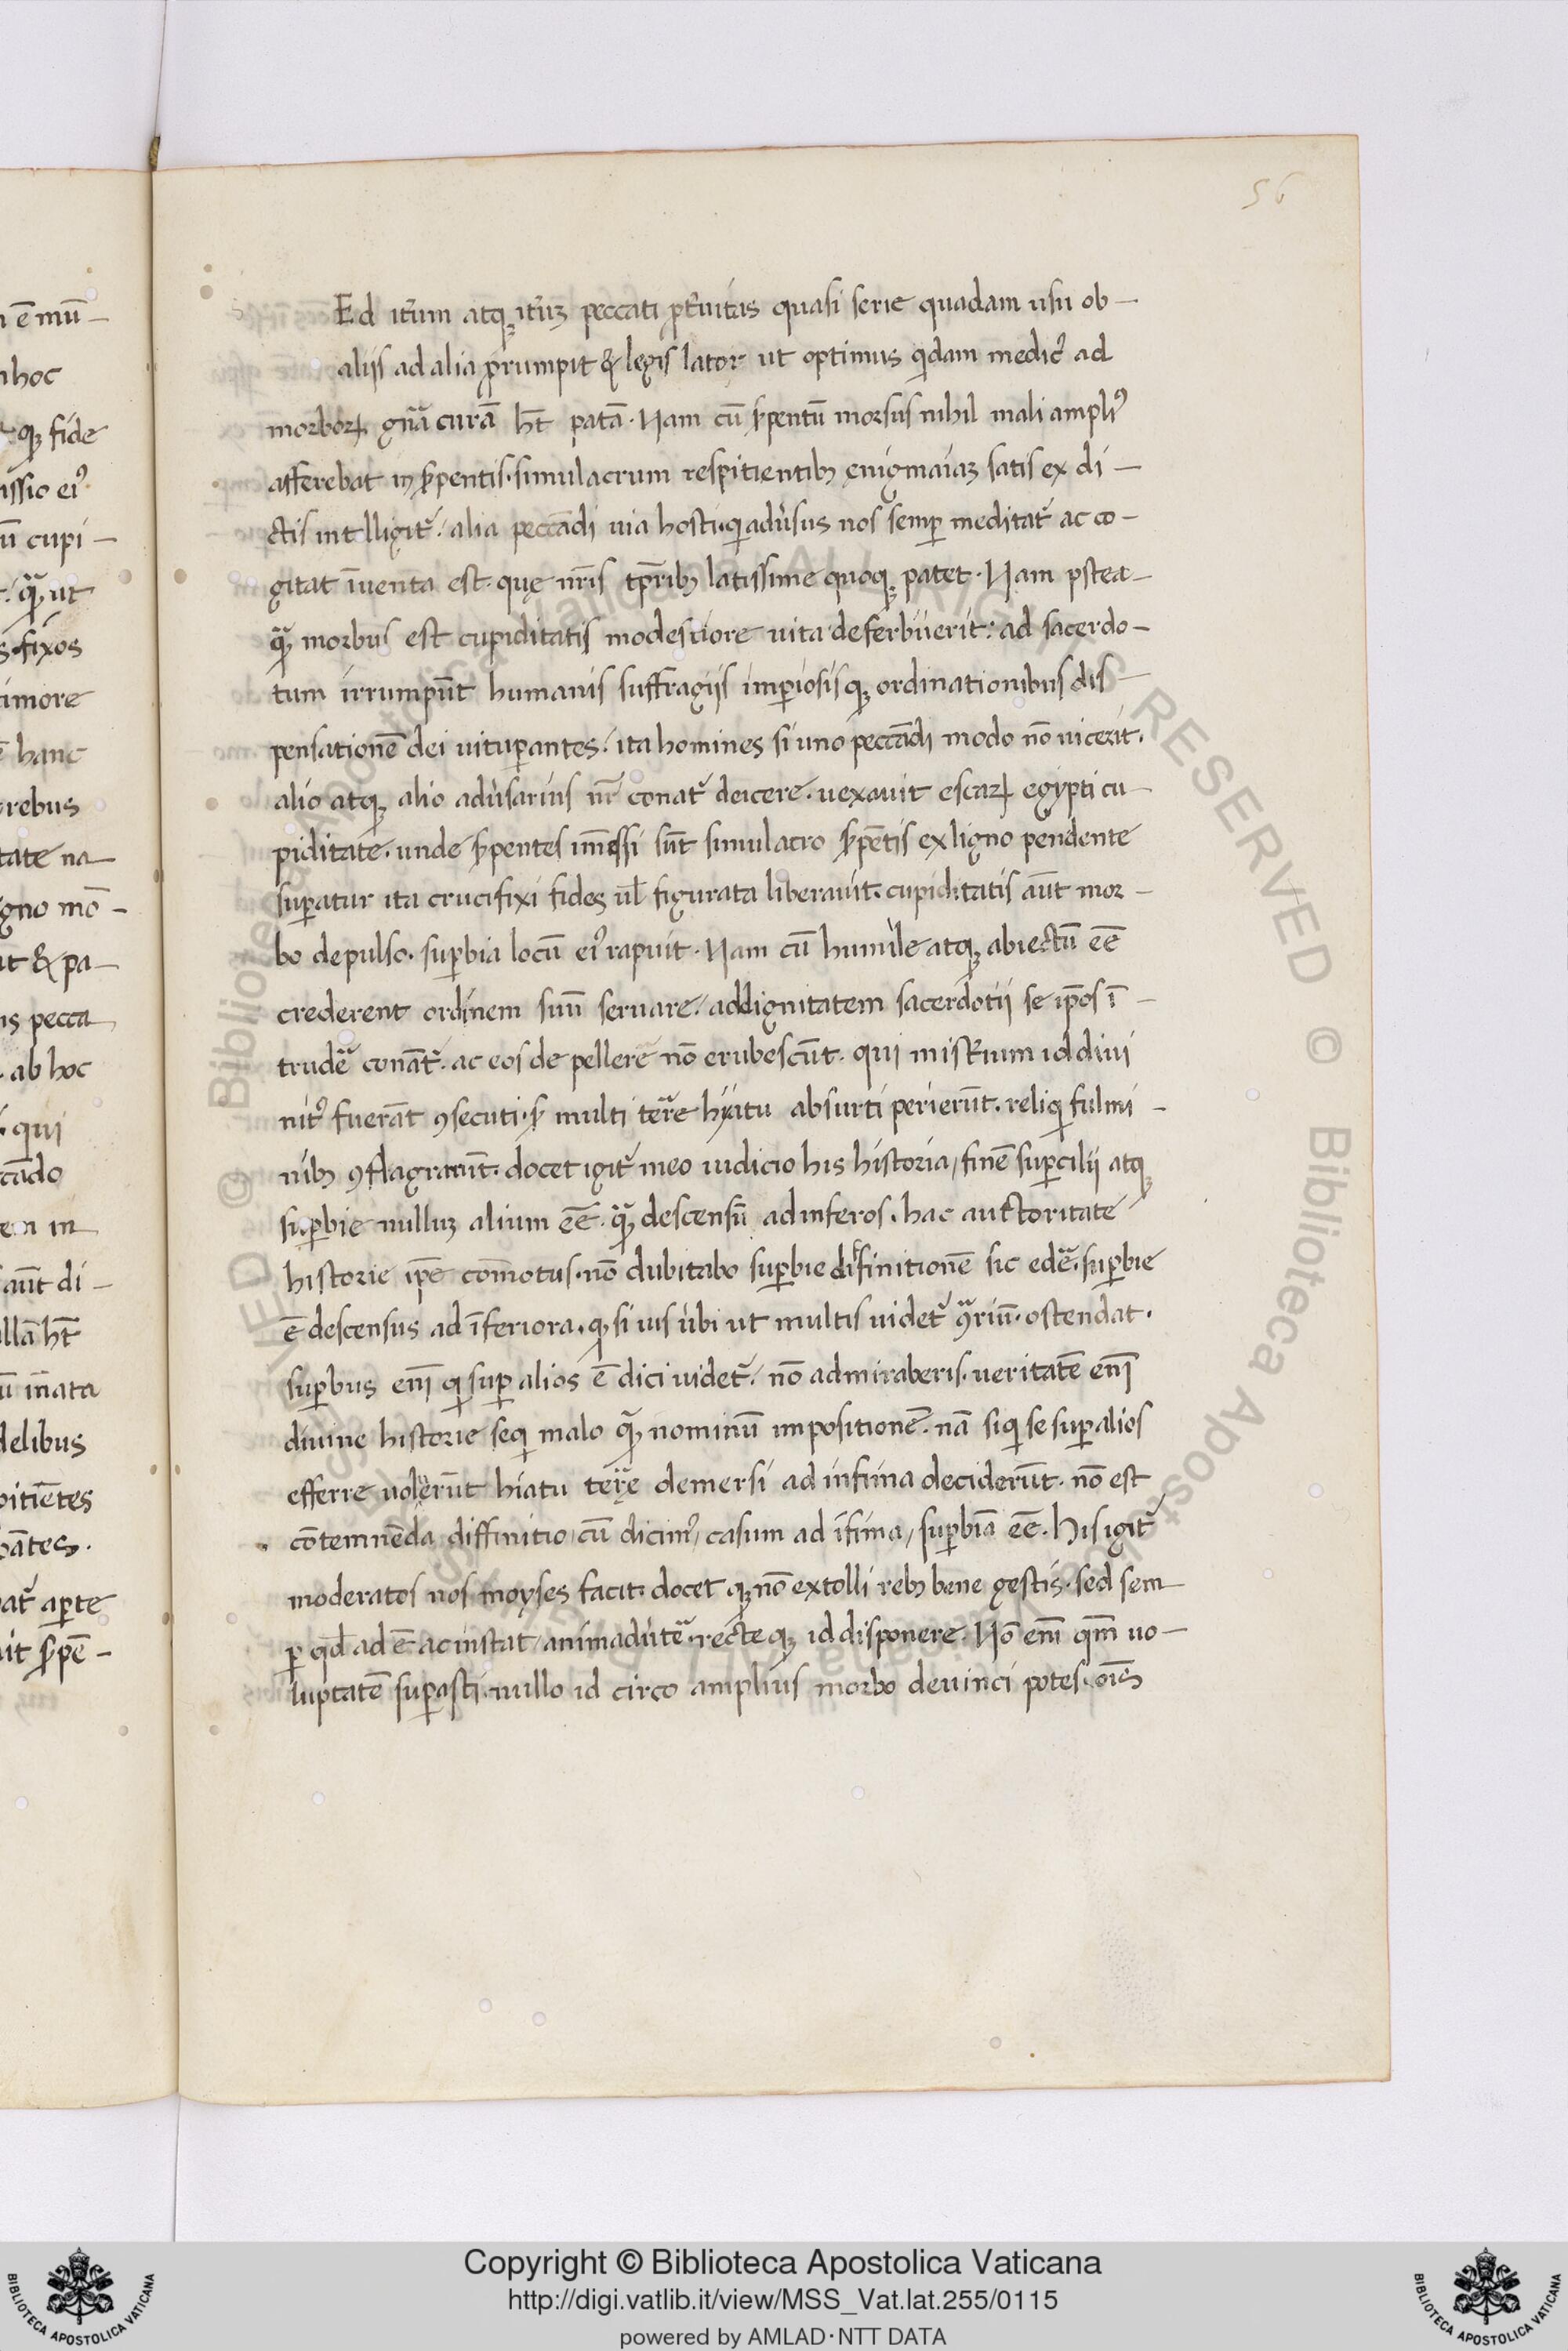 56
Ed itum atq; itūꝫ peccati ptuitas quasi serie quadam usu ob-
aliis ad alia prumpit & legis lator ut optimus qdam medic⁹ ad
morborꝝ gnā curā ht̄ patā. Nam cū spentū morsus nihil mali ampli⁹
afferebat in spentis. simulacrum respitientibꝫ enigmaiaꝫ satis ex di-
ctis intlligit. alia peccādi uia hosti. qi adusus nos semp meditat ac co-
gitat īuenta est. quę nr̄is tpr̄ibꝫ latissime quoqꝫ patet. Nam pstea-
qꝫ morbus est cupiditatis modestiore uita deferbuerit: ad sacerdo-
tum irrumpūt humanis suffragiis imperiosisqꝫ ordinationibus dis-
pensationē dei uitupantes. ita homines si uno peccādi modo nō uicerit.
alio atqꝫ alio adusarius nr̄ conat deicere. uexauit escarꝝ egypti cu-
piditate. unde spentes īmessi sūt simulacro spētis ex ligno pendente
supatur ita crucifixi fides ul̄ figurata liberauit. cupiditatis aūt mor-
bo depulso. supbia locū ei⁹ rapuit. Nam cū humile atqꝫ abiectū eē
crederent ordinem suū seruare. ad dignitatem sacerdotii se ipos ī-
trudē conāt. ac eos de pellere nō erubescūt. qui mistium id diui
nit⁹ fuerāt ꝯsecuti. s multi tere hyatu absurti perierūt. reliqi fulmi-
nibꝫ ꝯflagrarūt. docet igit meo iudicio his historia, finē supcilii atqꝫ
supbie nulluꝫ alium eē. qꝫ descensū ad inferos. hac auctoritate
historie ipe comotus. nō dubitabo supbie diffinitionē sic edē. supbie
ē descensus ad īferiora. qꝫ si uis ubi ut multis uidet ꝯriū. ostendat.
supbus enī qi sup alios ē dici uidet. nō admiraberis. ueritatē enī
diuine historie seqi malo qꝫ nominū impositionē. nā siqi se sup alios
efferre uolerūt hiatu tere demersi ad infima deciderūt. nō est
cōtemnēda diffinitio, cū dicim⁹, casum ad īfima, supbiā eē. His igit
moderatos nos moyses facit. docet qꝫ nō extolli rebꝫ bene gestis. sed sem-
p qd ad ē ac instat, animadutē. recteqꝫ id disponere. Nō enī qm̄ uo-
luptatē supasti. nullo id circo amplius morbo deuinci potes. oīs
ē mū-
hoc
qꝫ fide
issio ei⁹
ū cupi-
qꝫ ut
fixos
timore
hanc
rebus
tate na-
gno mō-
ut & pa-
is pecca
ab hoc
qui
cādo
in
aūt di-
llā ht̄
ū īnata
delibus
pitiētes
bātes.
at apte
uit spē-
Copyright © Biblioteca Apostolica Vaticana
http://digi.vatlib.it/view/MSS_Vat.lat.255/0115
powered by AMLAD·NTT DATA
BIBLIOTECA APOSTOLICA VATICANA
BIBLIOTECA APOSTOLICA VATICANA